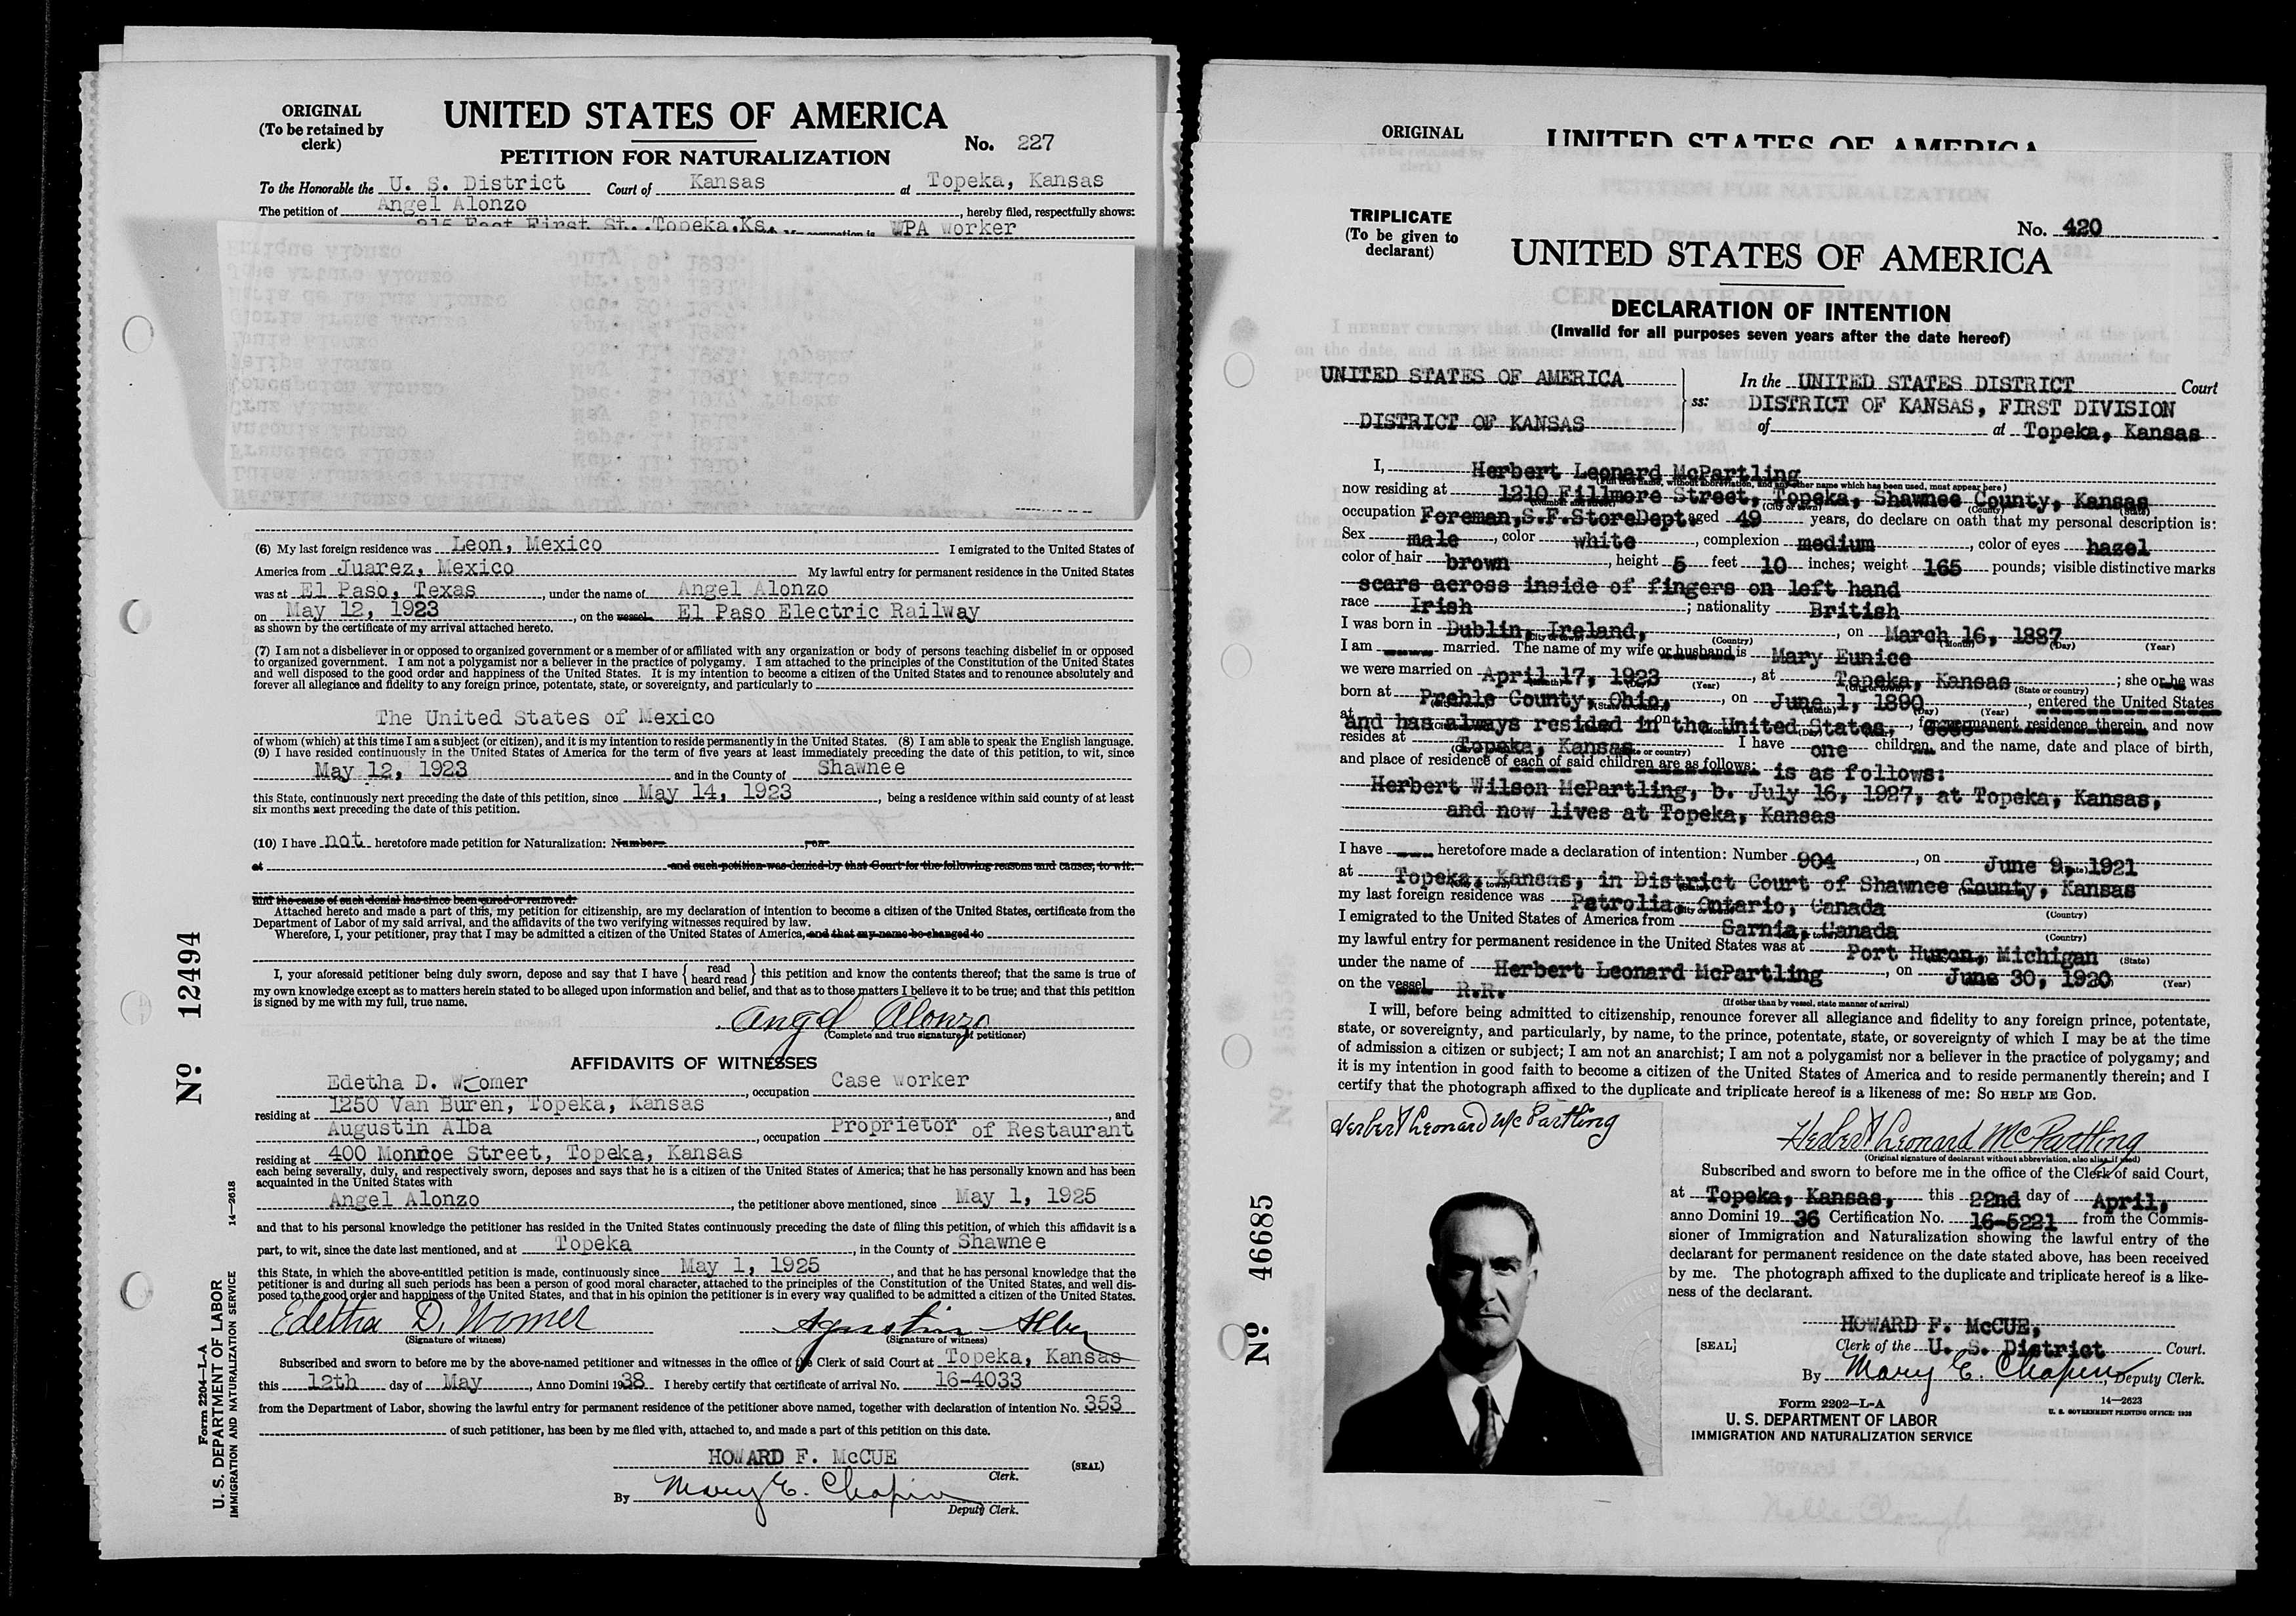 ORIGINAL
(To be retained by
clerk)
UNITED STATES OF AMERICA
No. 227
PETITION FOR NATURALIZATION
To the Honorable the U. S. District Court of Kansas at Topeka, Kansas
The petition of Angel Alonzo, hereby filed, respectfully shows:
215 East First St., Topeka, Ks. My occupation is WPA worker
(6) My last foreign residence was Leon, Mexico I emigrated to the United States of
America from Juarez, Mexico My lawful entry for permanent residence in the United States
was at El Paso, Texas, under the name of Angel Alonzo
on May 12, 1923, on the vessel El Paso Electric Railway
as shown by the certificate of my arrival attached hereto.
(7) I am not a disbeliever in or opposed to organized government or a member of or affiliated with any organization or body of persons teaching disbelief in or opposed
to organized government. I am not a polygamist nor a believer in the practice of polygamy. I am attached to the principles of the Constitution of the United States
and well disposed to the good order and happiness of the United States. It is my intention to become a citizen of the United States and to renounce absolutely and
forever all allegiance and fidelity to any foreign prince, potentate, state, or sovereignty, and particularly to
The United States of Mexico
of whom (which) at this time I am a subject (or citizen), and it is my intention to reside permanently in the United States. (8) I am able to speak the English language.
(9) I have resided continuously in the United States of America for the term of five years at least immediately preceding the date of this petition, to wit, since
May 12, 1923 and in the County of Shawnee
this State, continuously next preceding the date of this petition, since May 14, 1923, being a residence within said county of at least
six months next preceding the date of this petition.
(10) I have not heretofore made petition for Naturalization: Number on
at and such petition was denied by that Court for the following reasons and causes, to wit:
and the cause of such denial has since been cured or removed.
Attached hereto and made a part of this, my petition for citizenship, are my declaration of intention to become a citizen of the United States, certificate from the
Department of Labor of my said arrival, and the affidavits of the two verifying witnesses required by law.
Wherefore, I, your petitioner, pray that I may be admitted a citizen of the United States of America, and that my name be changed to
I, your aforesaid petitioner being duly sworn, depose and say that I have {read heard read} this petition and know the contents thereof; that the same is true of
my own knowledge except as to matters herein stated to be alleged upon information and belief, and that as to those matters I believe it to be true; and that this petition
is signed by me with my full, true name.
Angel Alonzo
(Complete and true signature of petitioner)
AFFIDAVITS OF WITNESSES
Edetha D. Womer, occupation Case worker
residing at 1250 Van Buren, Topeka, Kansas, and
Augustin Alba, occupation Proprietor of Restaurant
residing at 400 Monroe Street, Topeka, Kansas
each being severally, duly, and respectively sworn, deposes and says that he is a citizen of the United States of America; that he has personally known and has been
acquainted in the United States with
Angel Alonzo, the petitioner above mentioned, since May 1, 1925
and that to his personal knowledge the petitioner has resided in the United States continuously preceding the date of filing this petition, of which this affidavit is a
part, to wit, since the date last mentioned, and at Topeka, in the County of Shawnee
this State, in which the above-entitled petition is made, continuously since May 1, 1925, and that he has personal knowledge that the
petitioner is and during all such periods has been a person of good moral character, attached to the principles of the Constitution of the United States, and well dis-
posed to the good order and happiness of the United States, and that in his opinion the petitioner is in every way qualified to be admitted a citizen of the United States.
Edetha D. Womer Agustin Alba
(Signature of witness) (Signature of witness)
Subscribed and sworn to before me by the above-named petitioner and witnesses in the office of the Clerk of said Court at Topeka, Kansas
this 12th day of May, Anno Domini 1938 I hereby certify that certificate of arrival No. 16-4033
from the Department of Labor, showing the lawful entry for permanent residence of the petitioner above named, together with declaration of intention No. 353
of such petitioner, has been by me filed with, attached to, and made a part of this petition on this date.
HOWARD F. McCUE
Clerk.
(SEAL)
By Mary E. Chapin
Deputy Clerk.
No 12494
14—2618
Form 2204—L-A
U. S. DEPARTMENT OF LABOR
IMMIGRATION AND NATURALIZATION SERVICE
ORIGINAL
UNITED STATES OF AMERICA
TRIPLICATE
(To be given to
declarant)
No. 420
UNITED STATES OF AMERICA
DECLARATION OF INTENTION
(Invalid for all purposes seven years after the date hereof)
UNITED STATES OF AMERICA In the UNITED STATES DISTRICT Court
ss: DISTRICT OF KANSAS, FIRST DIVISION
DISTRICT OF KANSAS of at Topeka, Kansas
I, Herbert Leonard McPartling
(Full true name, without abbreviation, and any other name which has been used, must appear here)
now residing at 1210 Fillmore Street, Topeka, Shawnee County, Kansas
occupation Foreman, S.F.StoreDept aged 49 years, do declare on oath that my personal description is:
Sex male, color white, complexion medium, color of eyes hazel
color of hair brown, height 5 feet 10 inches; weight 165 pounds; visible distinctive marks
scars across inside of fingers on left hand
race Irish; nationality British
I was born in Dublin, Ireland, on March 16, 1887
I am married. The name of my wife or husband is Mary Eunice
we were married on April 17, 1923, at Topeka, Kansas; she or he was
born at Preble County, Ohio, on June 1, 1890, entered the United States
at and has always resided in the United States, for permanent residence therein, and now
resides at Topeka, Kansas I have one children, and the name, date and place of birth,
and place of residence of each of said children are as follows: is as follows:
Herbert Wilson McPartling, b. July 16, 1927, at Topeka, Kansas,
and now lives at Topeka, Kansas
I have heretofore made a declaration of intention: Number 904, on June 9, 1921
at Topeka, Kansas, in District Court of Shawnee County, Kansas
my last foreign residence was Petrolia, Ontario, Canada
I emigrated to the United States of America from Sarnia, Canada
my lawful entry for permanent residence in the United States was at Port Huron, Michigan
under the name of Herbert Leonard McPartling, on June 30, 1920
on the vessel R.R.
(If other than by vessel, state manner of arrival)
I will, before being admitted to citizenship, renounce forever all allegiance and fidelity to any foreign prince, potentate,
state, or sovereignty, and particularly, by name, to the prince, potentate, state, or sovereignty of which I may be at the time
of admission a citizen or subject; I am not an anarchist; I am not a polygamist nor a believer in the practice of polygamy; and
it is my intention in good faith to become a citizen of the United States of America and to reside permanently therein; and I
certify that the photograph affixed to the duplicate and triplicate hereof is a likeness of me: SO HELP ME GOD.
Herbert Leonard McPartling
Herbert Leonard McPartling
(Original signature of declarant without abbreviation, also alias, if used)
Subscribed and sworn to before me in the office of the Clerk of said Court,
at Topeka, Kansas, this 22nd day of April,
anno Domini 1936 Certification No. 16-5221 from the Commis-
sioner of Immigration and Naturalization showing the lawful entry of the
declarant for permanent residence on the date stated above, has been received
by me. The photograph affixed to the duplicate and triplicate hereof is a like-
ness of the declarant.
HOWARD F. McCUE,
[SEAL] Clerk of the U. S. District Court.
By Mary E. Chapin, Deputy Clerk.
Form 2202—L-A
U. S. DEPARTMENT OF LABOR
IMMIGRATION AND NATURALIZATION SERVICE
14—2623
U. S. GOVERNMENT PRINTING OFFICE: 1935
No 46685